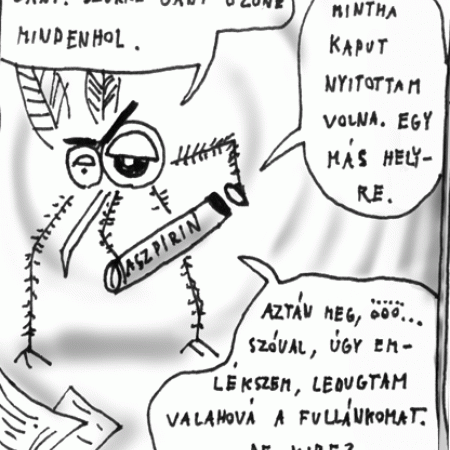 MINDENHOL.
MINTHA
KAPUT
NYITOTTAM
VOLNA. EGY
MÁS HELY-
RE.
ASZPIRIN
AZTÁN MEG, ÖÖÖ...
SZÓVAL, ÚGY EM-
LÉKSZEM, LEDUGTAM
VALAHOVÁ A FULLÁNKOMAT.